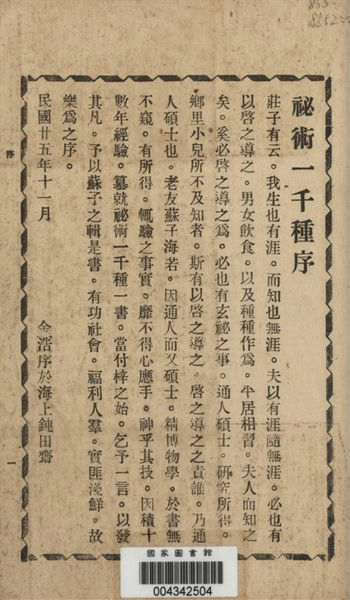 祕術一千種序
莊子有云。我生也有涯。而知也無涯。夫以有涯隨無涯。必也有
以啓之導之。男女飲食。以及種種作爲。平居相習。夫人而知之
矣。奚必啓之導之爲。必也有玄祕之事。通人碩士。研究所得。
鄉里小兒所不及知者。斯有以啓之導之。啓之導之之責誰。乃通
人碩士也。老友蘇子海若。因通人而又碩士。精博物學。於書無
不窺。有所得。輒驗之事實。靡不得心應手。神乎其技。因積十
數年經驗。纂就祕術一千種一書。當付梓之始。乞予一言。以發
其凡。予以蘇子之輯是書。有功社會。福利人羣。實匪淺鮮。故
樂爲之序。
民國廿五年十一月
金濳序於海上鈍田齋
序
一
國家圖書館
004342504